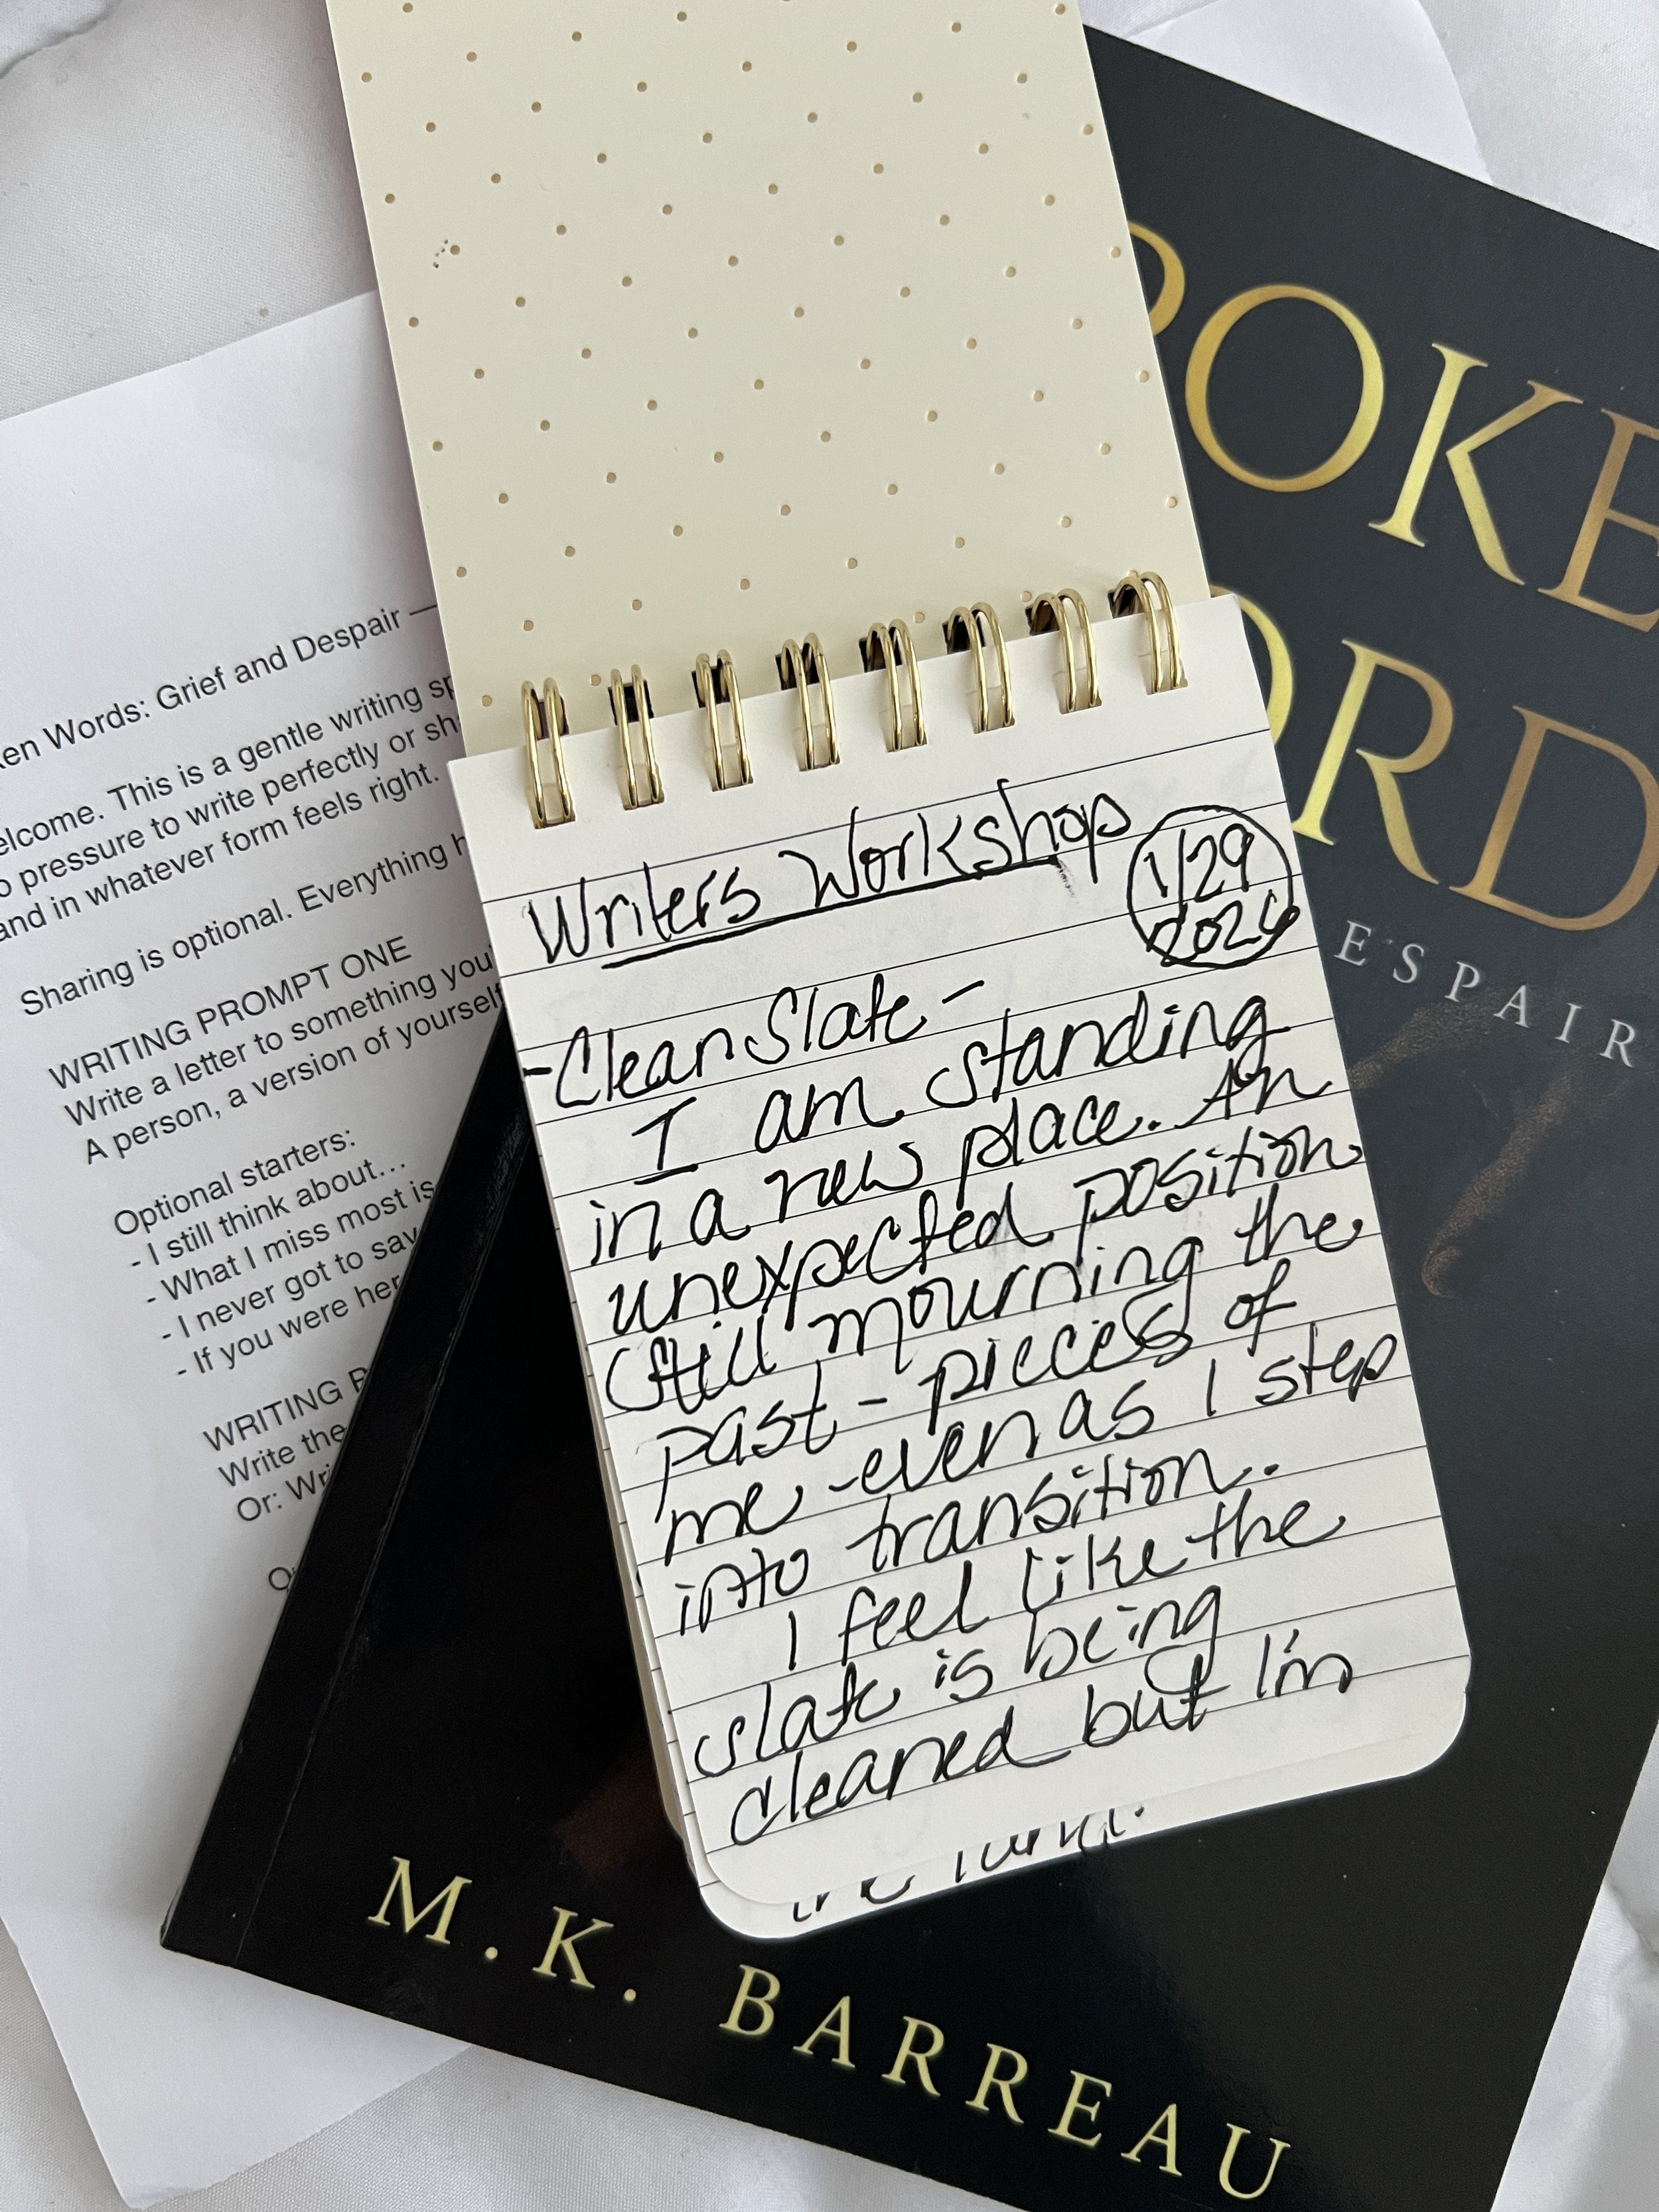 en Words: Grief and Despair —
elcome. This is a gentle writing sp
o pressure to write perfectly or sh
and in whatever form feels right.
Sharing is optional. Everything h
WRITING PROMPT ONE
Write a letter to something you
A person, a version of yourself
Optional starters:
- I still think about...
- What I miss most is
- I never got to say
- If you were her
WRITING P
Write the
Or: Wri
Writers Workshop
1/29
-Clean Slate-
I am standing
in a new place. An
unexpected position
still mourning the
past - pieces of
me - even as I step
into transition.
I feel like the
slate is being
cleaned but I'm
POKE
ORD
ESPAIR
M. K. BARREAU